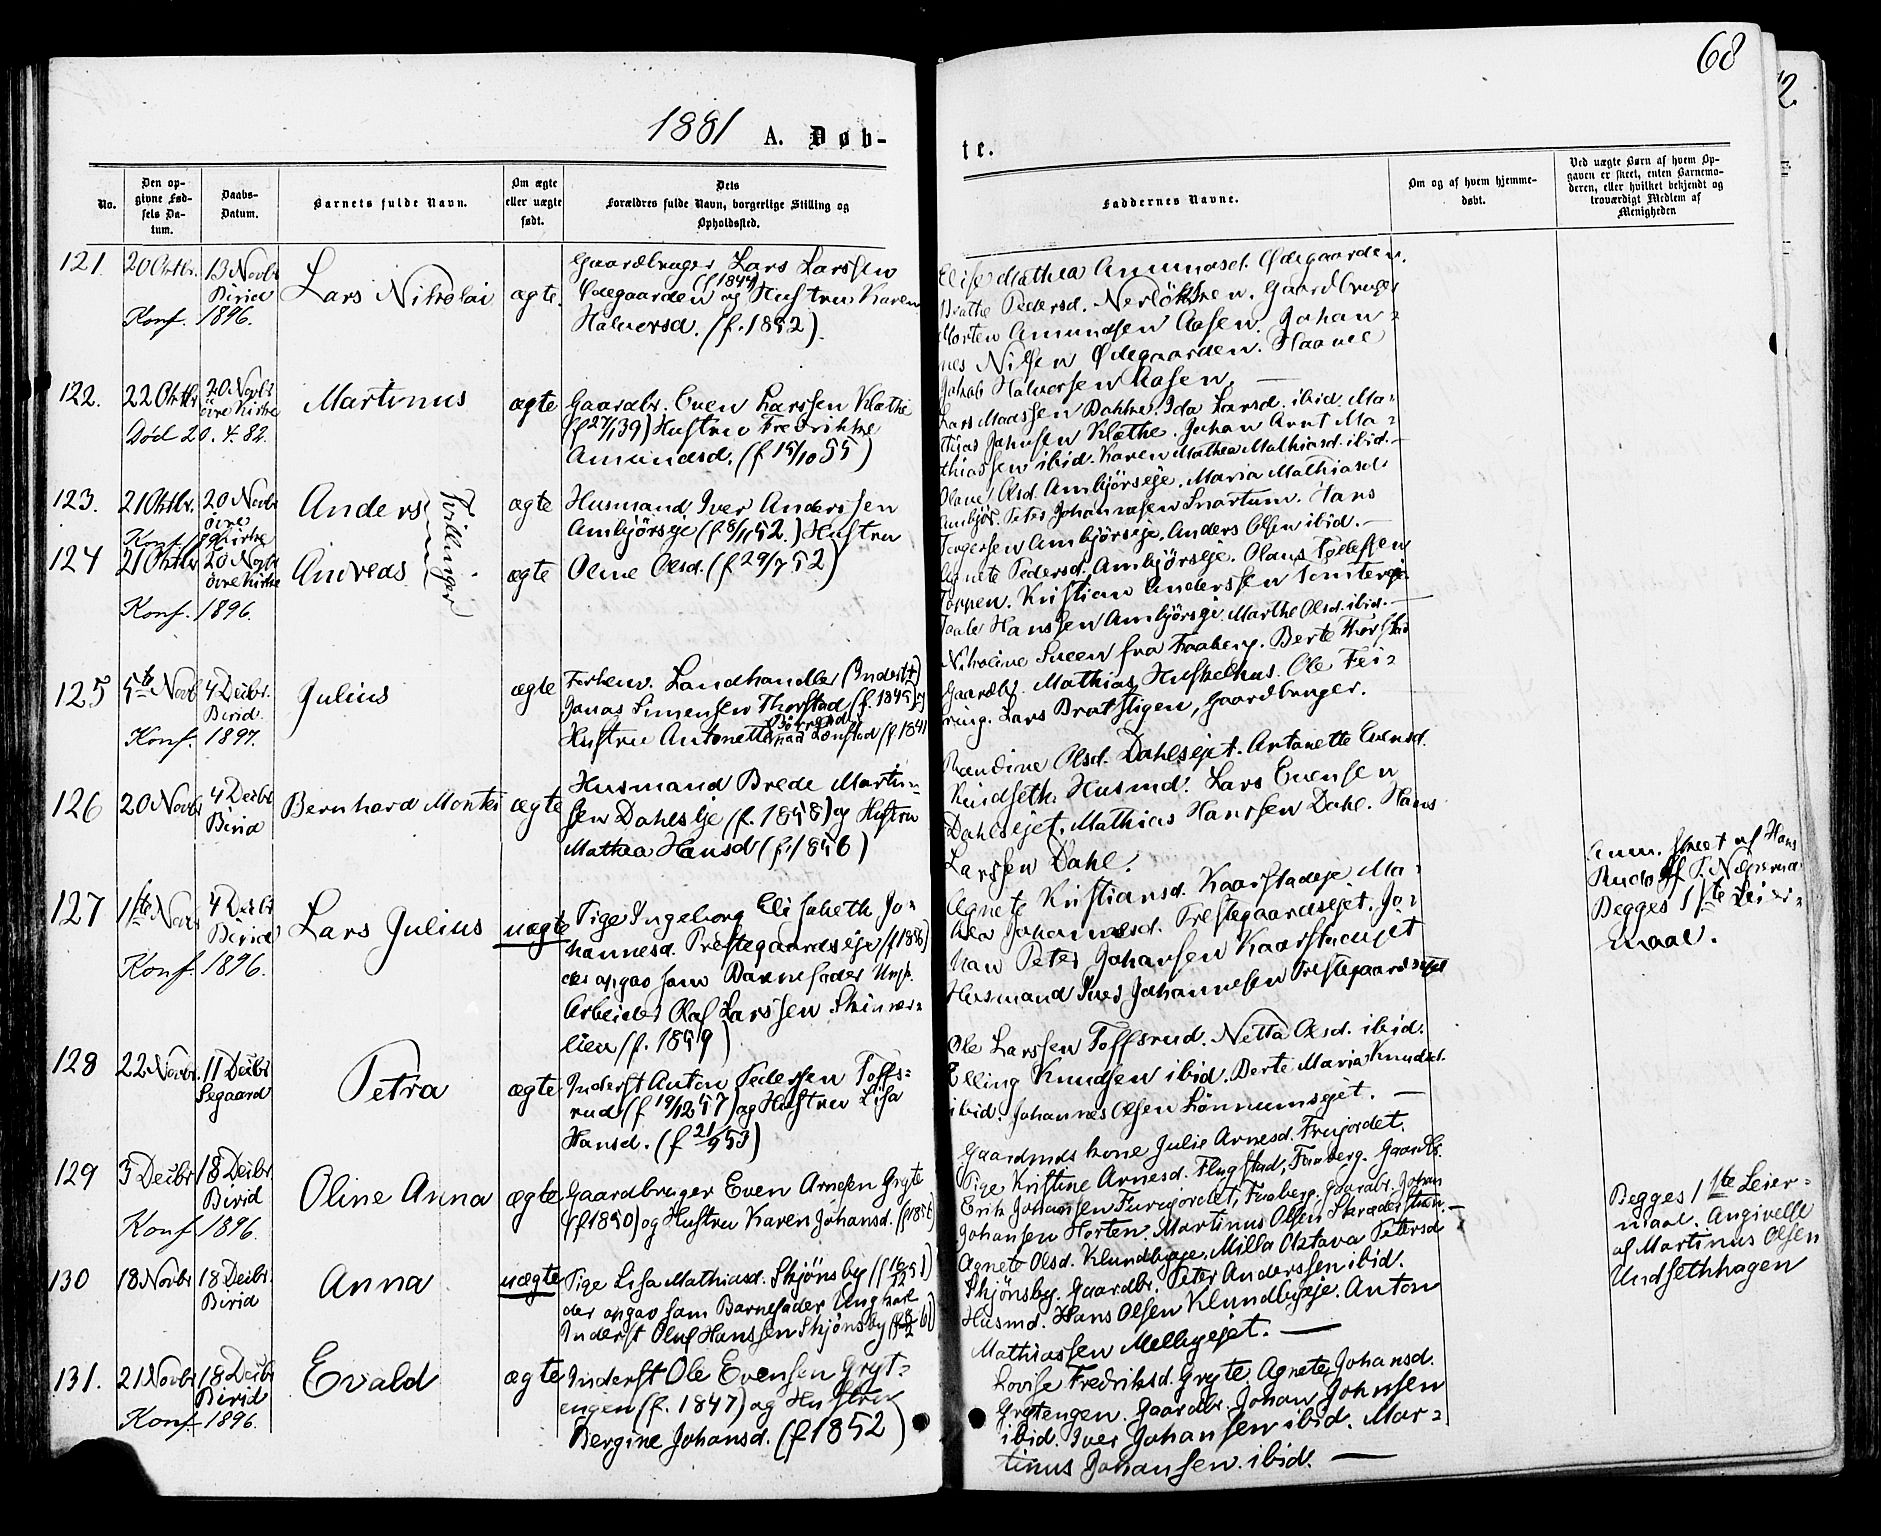 68
1881 A. Døb-
te.
No.
Den op-
givne Fød-
sels Da-
tum.
Daabs-
Datum.
Barnets fulde Navn.
Om ægte
eller uægte
født.
Dets
Forældres fulde Navn, borgerlige Stilling og
Opholdssted.
Faddernes Navne.
Om og af hvem hjemme-
døbt.
Ved uægte Børn af hvem Op-
gaven er skeet, enten Barnemo-
deren, eller hvilket bekjendt og
troværdigt Medlem af
Menigheden
121.
20 Oktbr.
13 Novbr
Birid
Konf. 1896.
Lars Nikolai
ægte.
Gaardbruger Lars Larssen
(f 1844)
Ødegaarden og Hustru Karen
Halvorsd. (f. 1852).
Elise Mathea Amundsd. Ødegaarden.
Pedersd. Nerløkken. Gaardbruger
Morten Amundsen Aasen. Johan-
nes Nilsen Ødegaarden.
Jakob Halvorsen Aasen.
122.
22 Oktbr
20 Novbr
övre Kirke
död 20.4.82.
Martinus
ægte
Gaardbr. Even Larssen Klæthe
(f 27/1 39) Hustru Fredrikke
Amundsd. (f 15/10 55)
Lars Madssen Dahlen. Ida Larsd. ibid. Ma-
thias Johnsen Klæthe. Johan Arnt Ma-
thiassen ibid. Karen Mathea Mathiasd. ibid.
123.
21 Oktbr.
20 Novbr
övre
Kirke
Anders
Tvillinger
ægte
Husmand Iver Anderssen
Ambjörseje (f 8/11 52.) Hustru
Olsd. Ambjörseje. Maria Mathiasd.
Ambjör. Peter Johannesen Snartum. Hans
Torgersen Ambjörseje. Anders Olsen ibid.
124
21 Oktbr
20 Novbr
övre Kirke
Konf. 1896.
Andreas
ægte
Oline Olsd. (f 29/7 52)
Agnete Pedersd. Ambjörseje. Olaus
Kristian Anderssen
Hanssen Ambjörseje. Marthe Olsd. ibid.
125
5te Novb
4 Decbr.
Birid
Konf. 1897.
Julius
ægte
Forhenv. Landhandler (Inderst)
Jonas Simensen Thorstad (f. 1845) og
Hustru Antonette
Nikoline Sveen fra Faaberg. Berte Thorstad
Gaardbr. Mathias Huskelhus. Ole Fei-
ring. Lars Bratstigen, Gaardbruger.
126
20 Novbr
4 Decbr
Birid
Bernhard Montes
ægte
Husmand Brede Martin-
sen Dahlseje (f. 1858) og Hustru
Mathea Hansd (f. 1856)
Randine Olsd. Dahlsejet. Antonette Evensd.
Rindseth. Husmd. Lars Evensen
Dahlsejet. Mathias Hanssen Dahl. Hans
Larssen Dahl.
127
1ste Novbr
4 Decbr
Birid
Konf. 1896.
Lars Julius
uægte
Pige Ingeborg Elisabeth Jo-
hannesd. Prestegaardseje (f 1856)
der opgav som Barnefader Ungk.
Arbeider Olaf Larssen Skinner-
lien (f. 1859)
Agnete Kristiansd. Kaarstadeje. Ma-
thea Johannesd. Prestegaardsejet. Jo-
han Peter Johansen Kaarstadejet
Husmand Iver Johannesen Prestegaardsejet
Anm. skeet af Hans
Rudolf T.
Begges 1ste Leier-
maal.
128
22 Novbr.
11 Decbr
Segaard
Petra
ægte
Inderst Anton Pederssen Toffs-
rud (f 19/12 57) og Hustru Lisa
Hansd. (f 21/9 53)
Ole Larssen Toffsrud. Netta Olsd. ibid.
Elling Knudsen ibid. Berte Maria Knudsd.
ibid. Johannes Olsen Lönnumsejet.
129
3 Decbr
18 Decbr
Birid
Konf 1896.
Oline Anna
ægte
Gaardbruger Even Arnesen Gryte
(f 1850) og Hustru Karen Johansd. (f 1856)
Gaardmds kone Julie Arnesd. Furejordet.
Pige Kristine Arnesd. Flugstad, Faaberg. Gaardbr.
Erik Johansen Furejordet, Faaberg. Gaardbr. Johan
Johansen Horten. Martinus Olsen
130
18 Novbr
18 Decbr.
Birid
Anna
uægte
Pige Lisa Mathiasd. Skjönsby
der opgav som Barnefader Ungkarl
Inderst Oluf Hanssen Skjönsby
Agnete Olsd. Klundbyeje. Milla Oktava Petersd
Skjönsby. Gaardbr. Peter Anderssen ibid.
Husmd. Hans Olsen Klundbyeje. Anton
Mathiassen Melbyejet.
Begges 1ste Leier-
maal. Angivelse
af Martinus Olsen
Undsethhagen
131.
21 Novbr
18 Decbr
Birid
Konf 1896.
Evald
ægte
Inderst Ole Evensen Gryt-
engen (f. 1847) og Hustru
Bergine Johansd. (f 1852)
Lovise Fredriksd. Gryte. Agnete Johansd.
Grytengen. Gaardbr. Johan Johnsen
ibid. Iver Johansen ibid. Mar-
tinus Johansen. ibid.